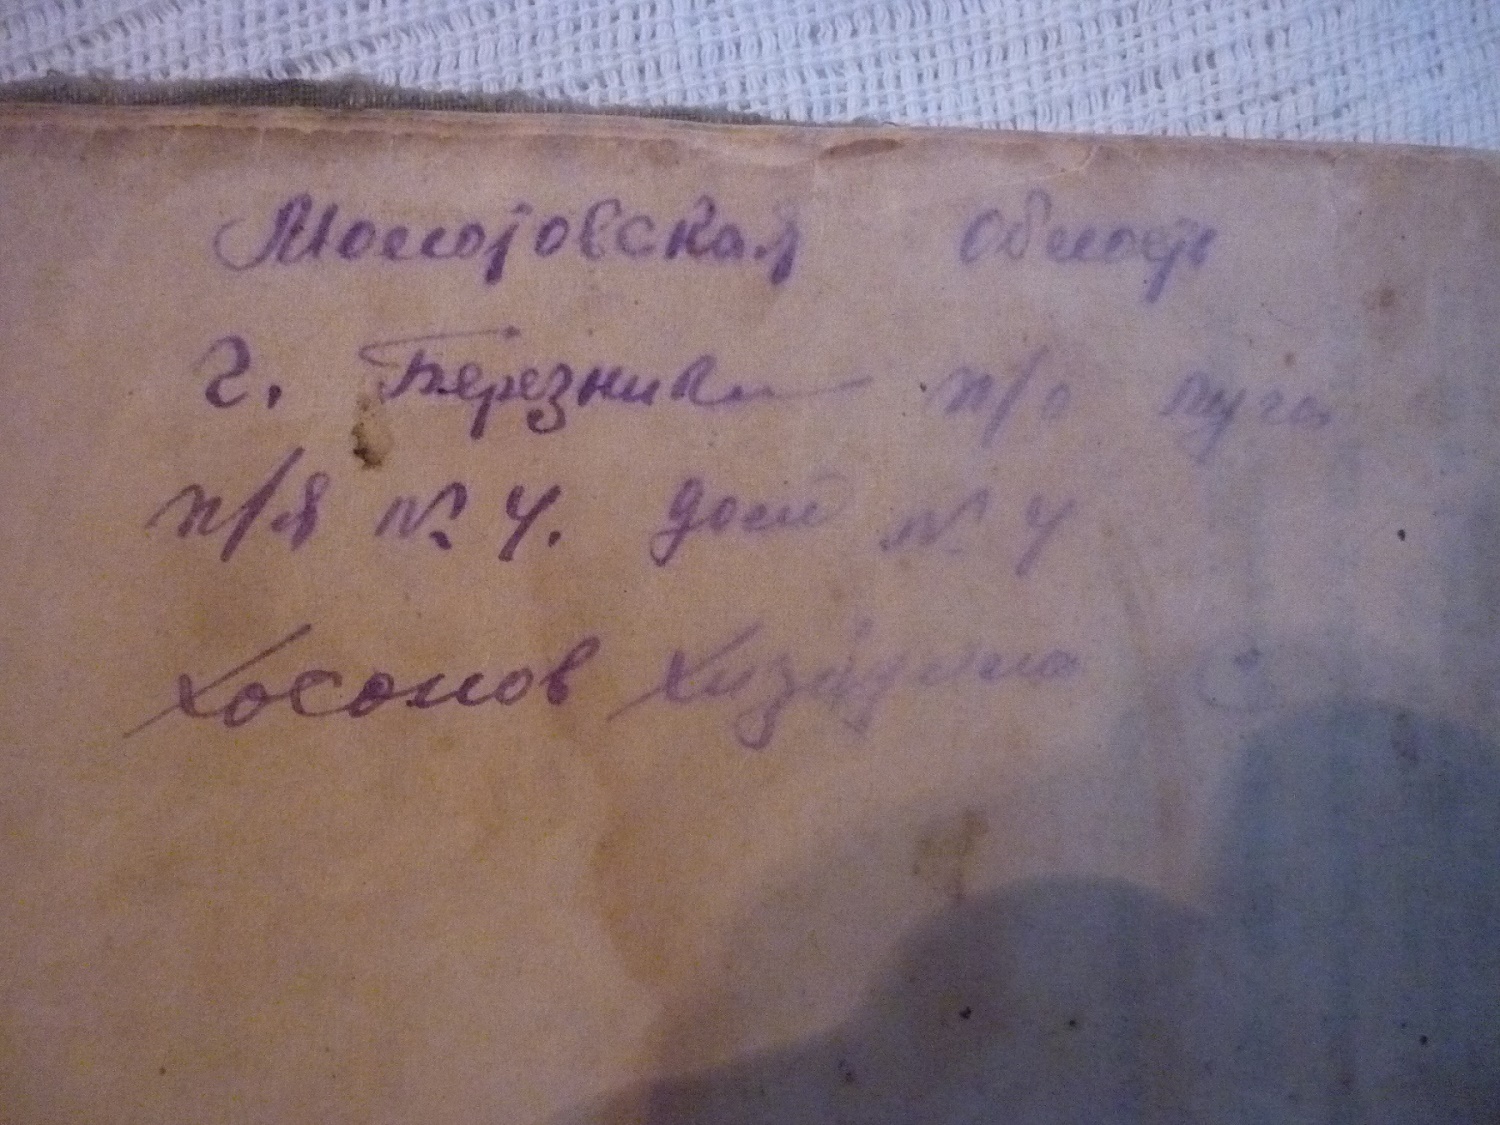 Молотовская область
г. Березники п/о
п/я № 4. дом № 4
Хосонов